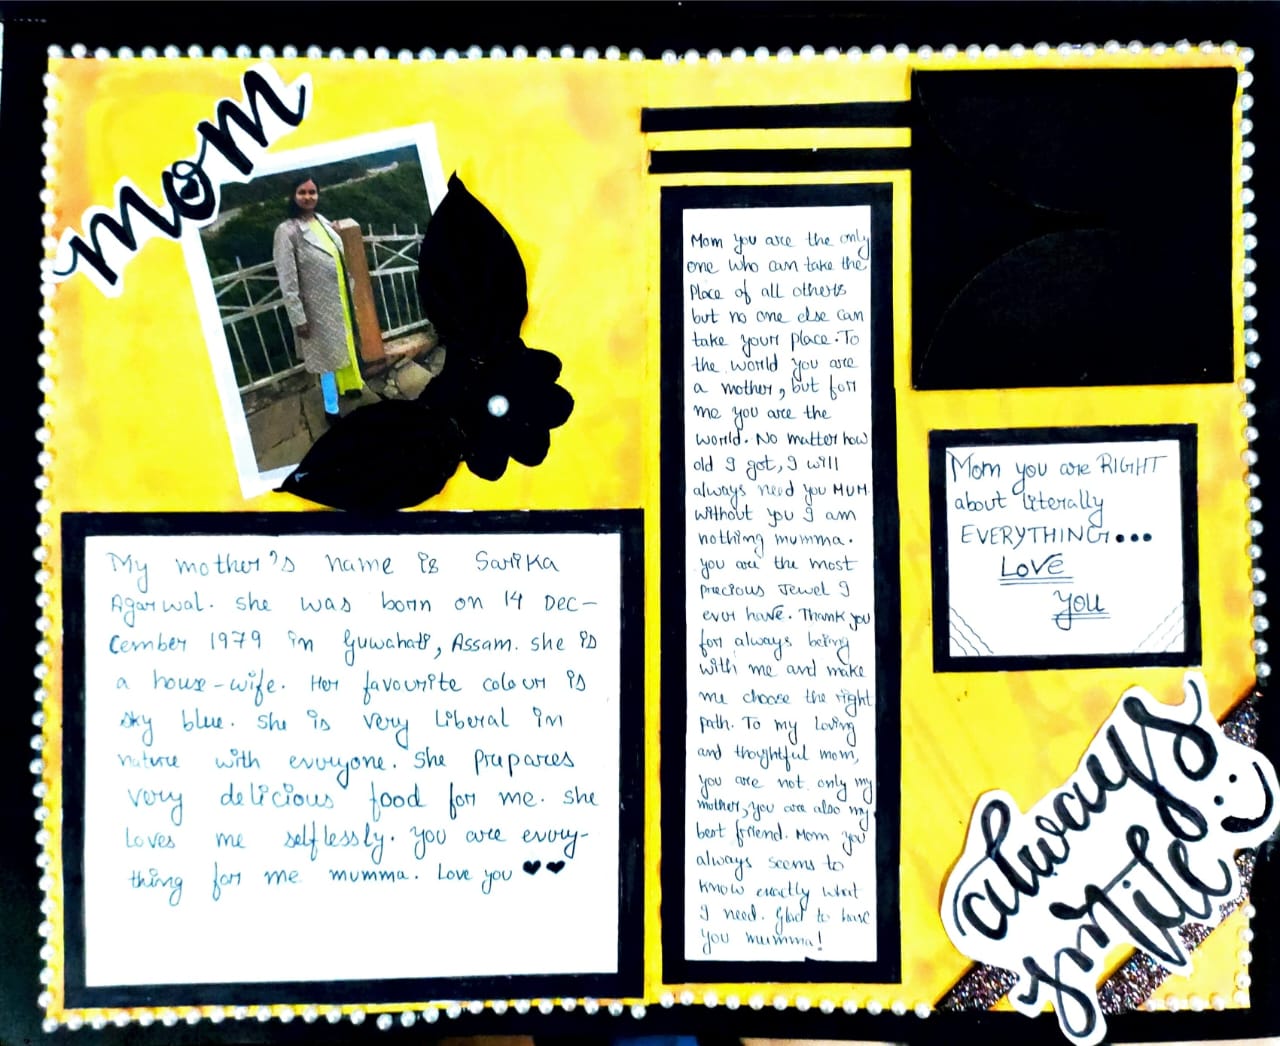 mom
My mother's name is Sarika
Agarwal. she was born on 14 Dec-
cember 1979 in Guwahati, Assam. she is
a house-wife. Her favourite colour is
sky blue. she is very liberal in
nature with everyone. She prepares
very delicious food for me. she
loves me selflessly. you are every-
thing for me mumma. Love you ♥♥
Mom you are the only
one who can take the
Place of all others
but no one else can
take your place. To
the world you are
a mother, but for
me you are the
world. No matter how
old I get, I will
always need you MUM.
without you I am
nothing mumma.
you are the most
precious Jewel I
ever have. Thank you
for always being
with me and make
me choose the right
path. To my loving
and thoughtful mom,
you are not only my
mother, you are also my
best friend. Mom you
always seems to
know exactly what
I need. Glad to have
you mumma!
Mom you are RIGHT
about literally
EVERYTHING...
LOVE
you
always
smile